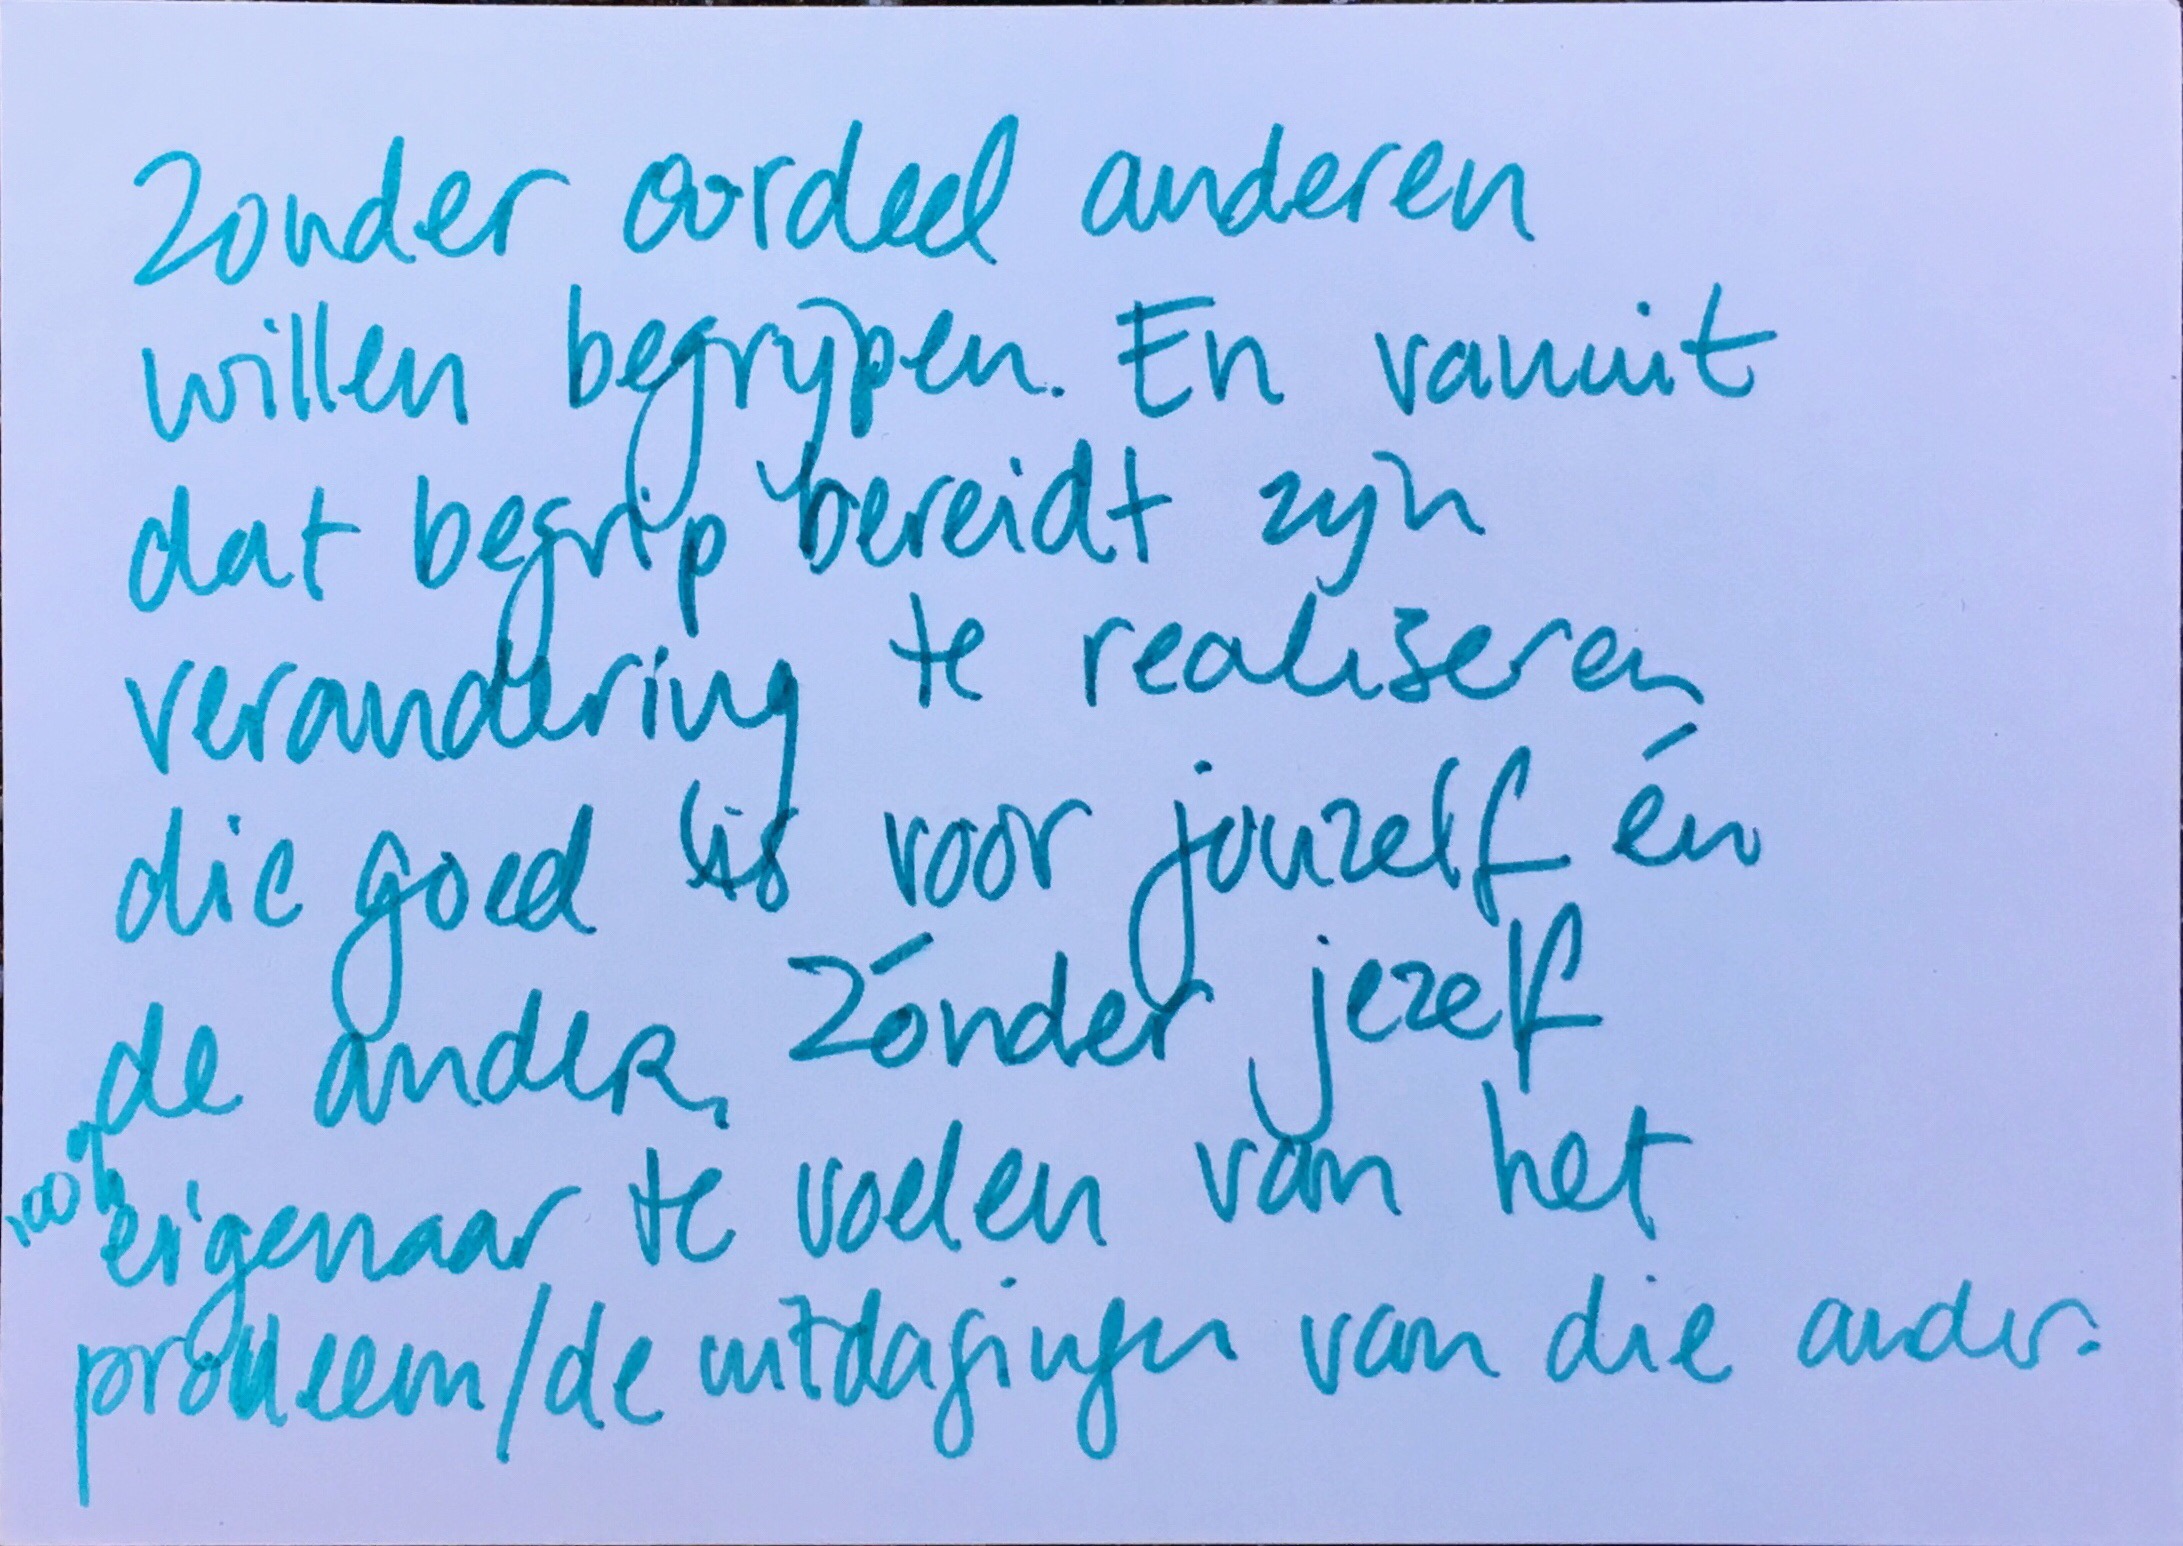 Zonder oordeel anderen
willen begrijpen. En vanuit
dat begrip bereidt zijn
verandering te realiseren
die goed is voor jouzelf én
de ander, zónder jezelf
100% eigenaar te voelen van het
probleem/de uitdagingen van die ander.